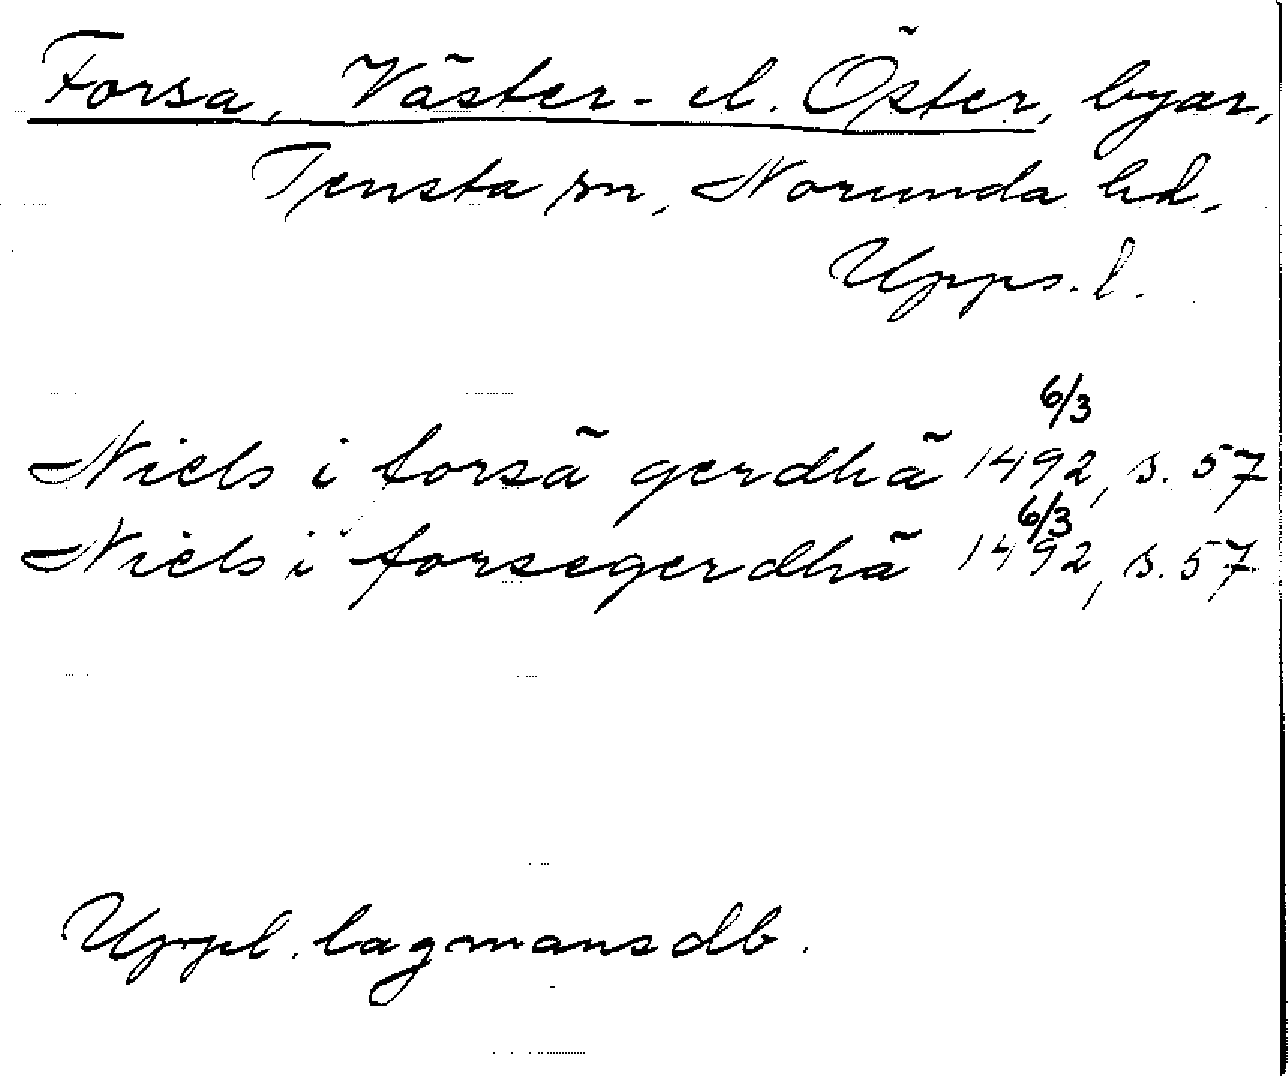 Forsa, Väster- el. Öster, byar,
Tensta sn, Norunda hd,
Upps. l.
Niels i forsä gerdhä 6/3 1492, s. 57
Niels i forsegerdhä 6/3 1492, s. 57
Uppl. lagmansdb.